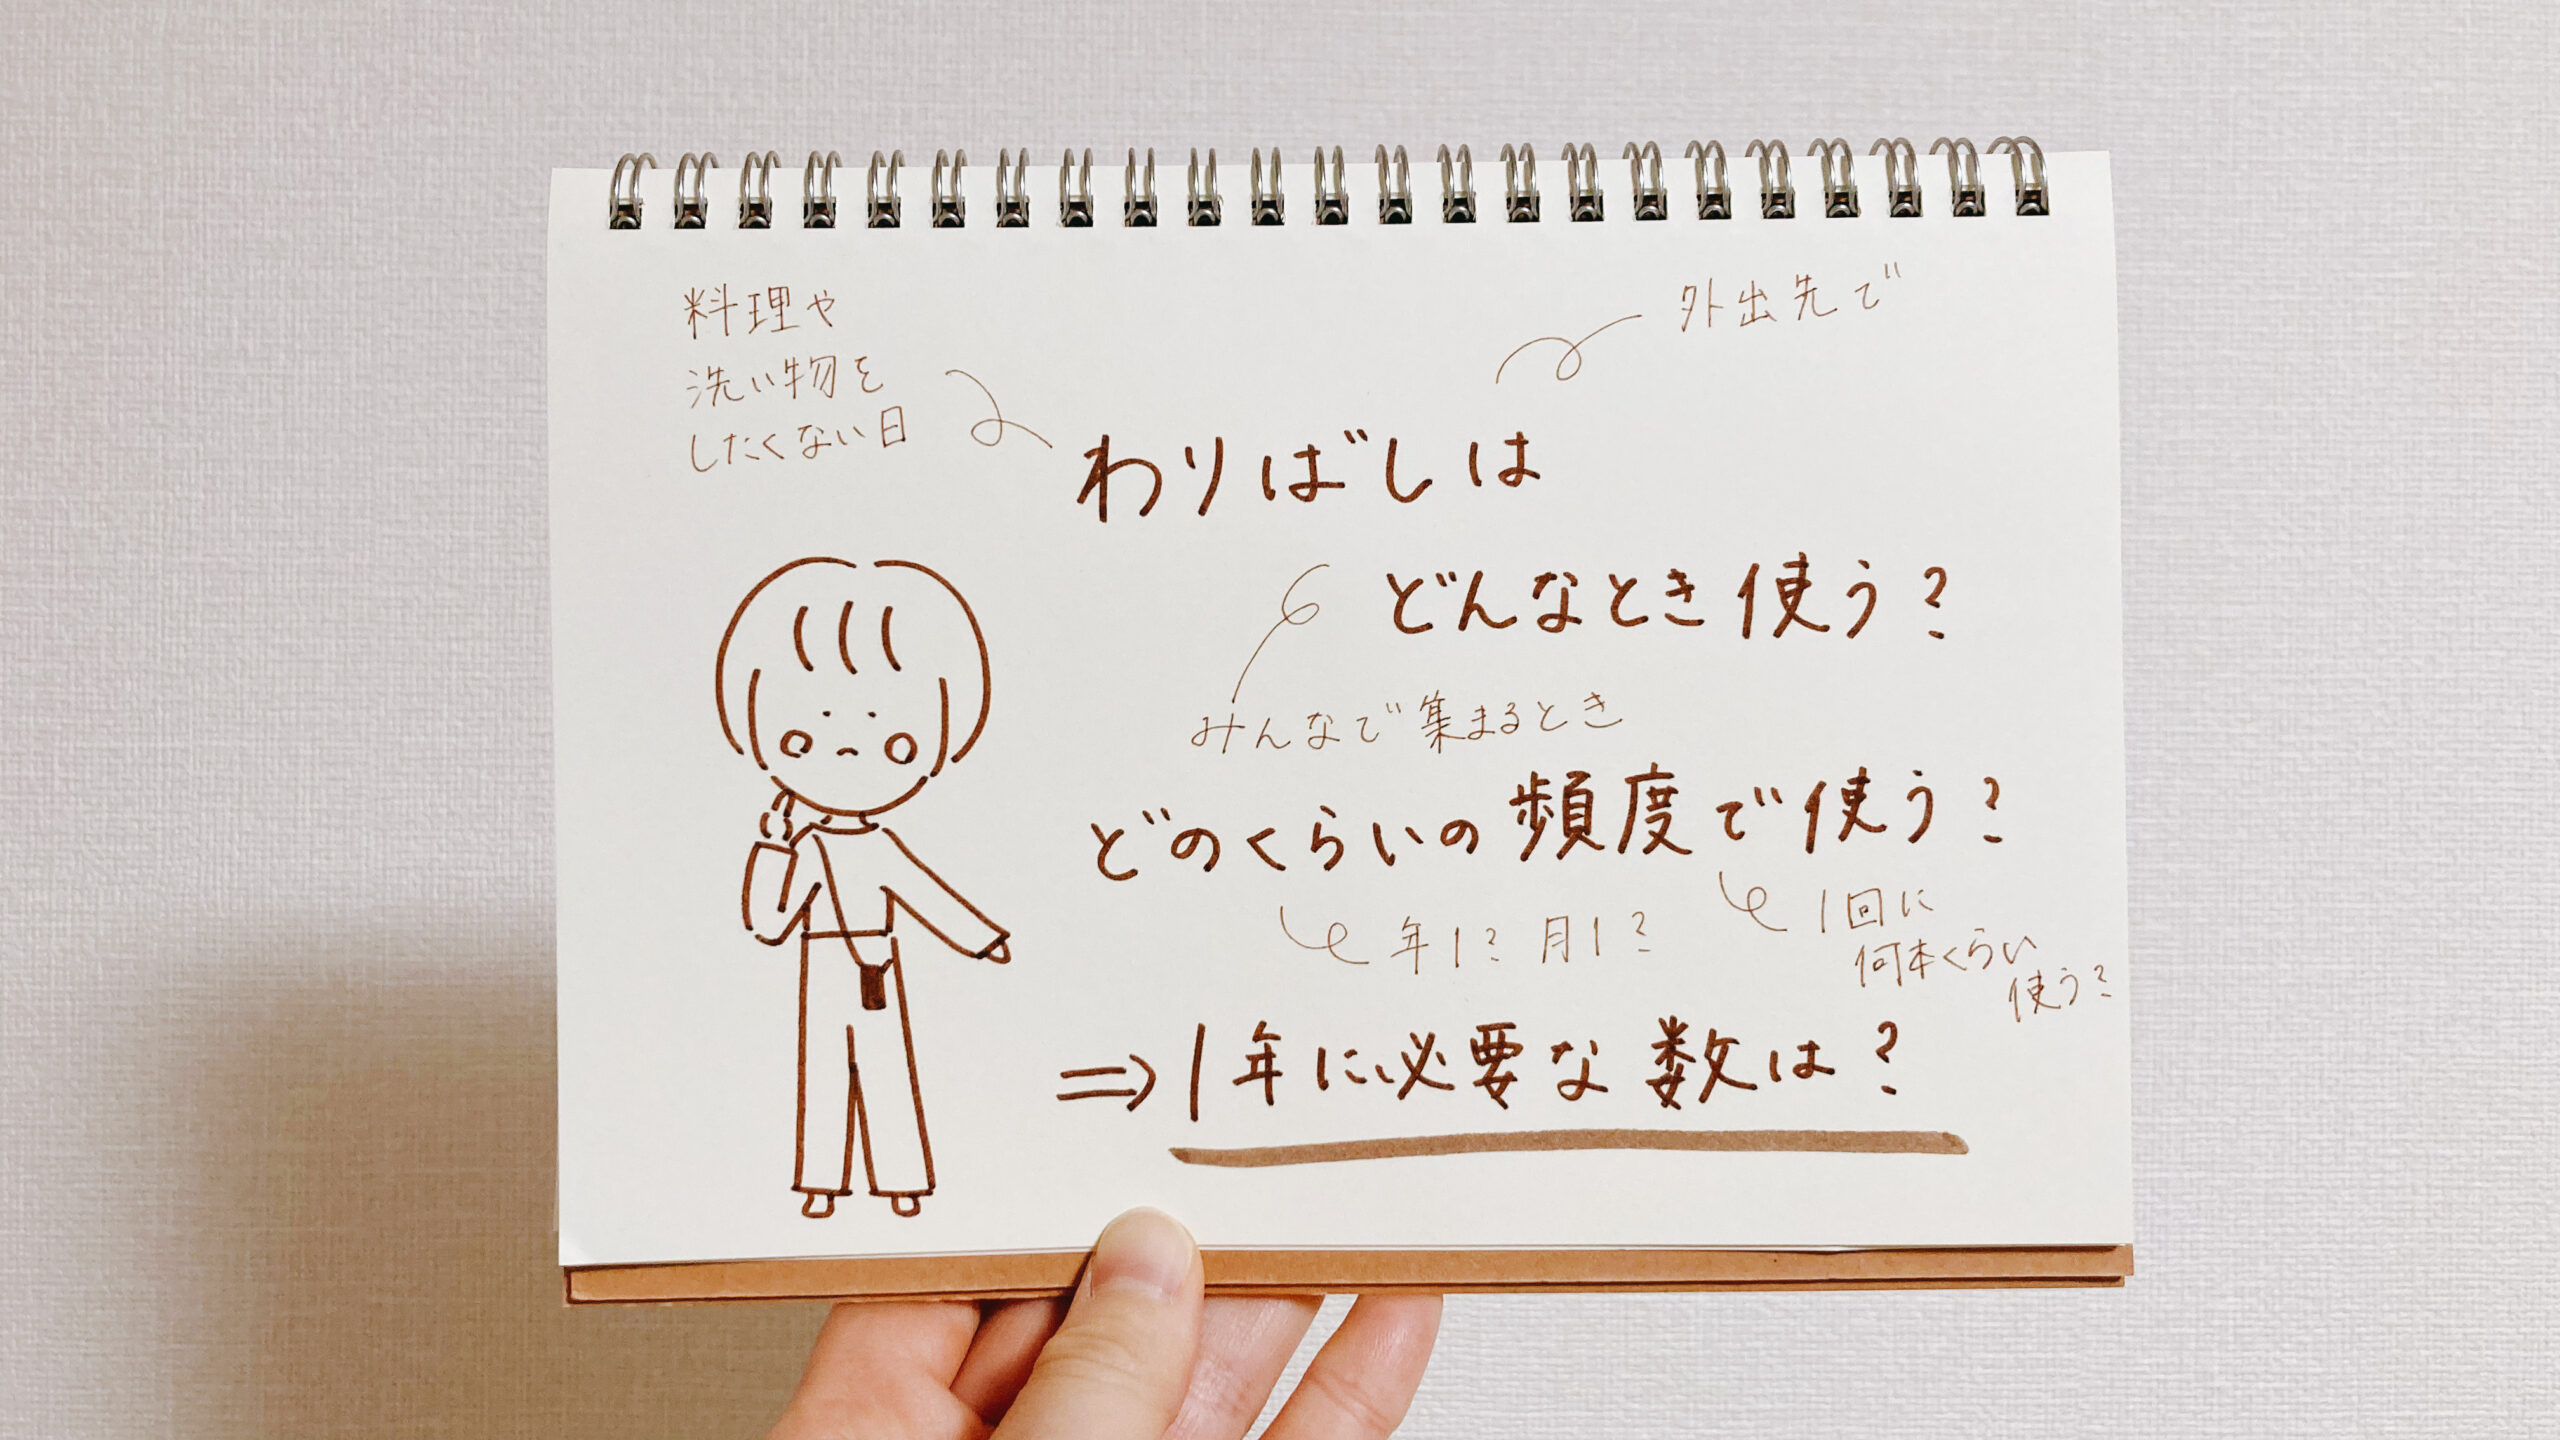 料理や
洗い物を
したくない日
外出先で
わりばしは
どんなとき使う?
みんなで集まるとき
どのくらいの頻度で使う?
年1? 月1?
1回に
何本くらい
使う?
⇒1年に必要な数は?